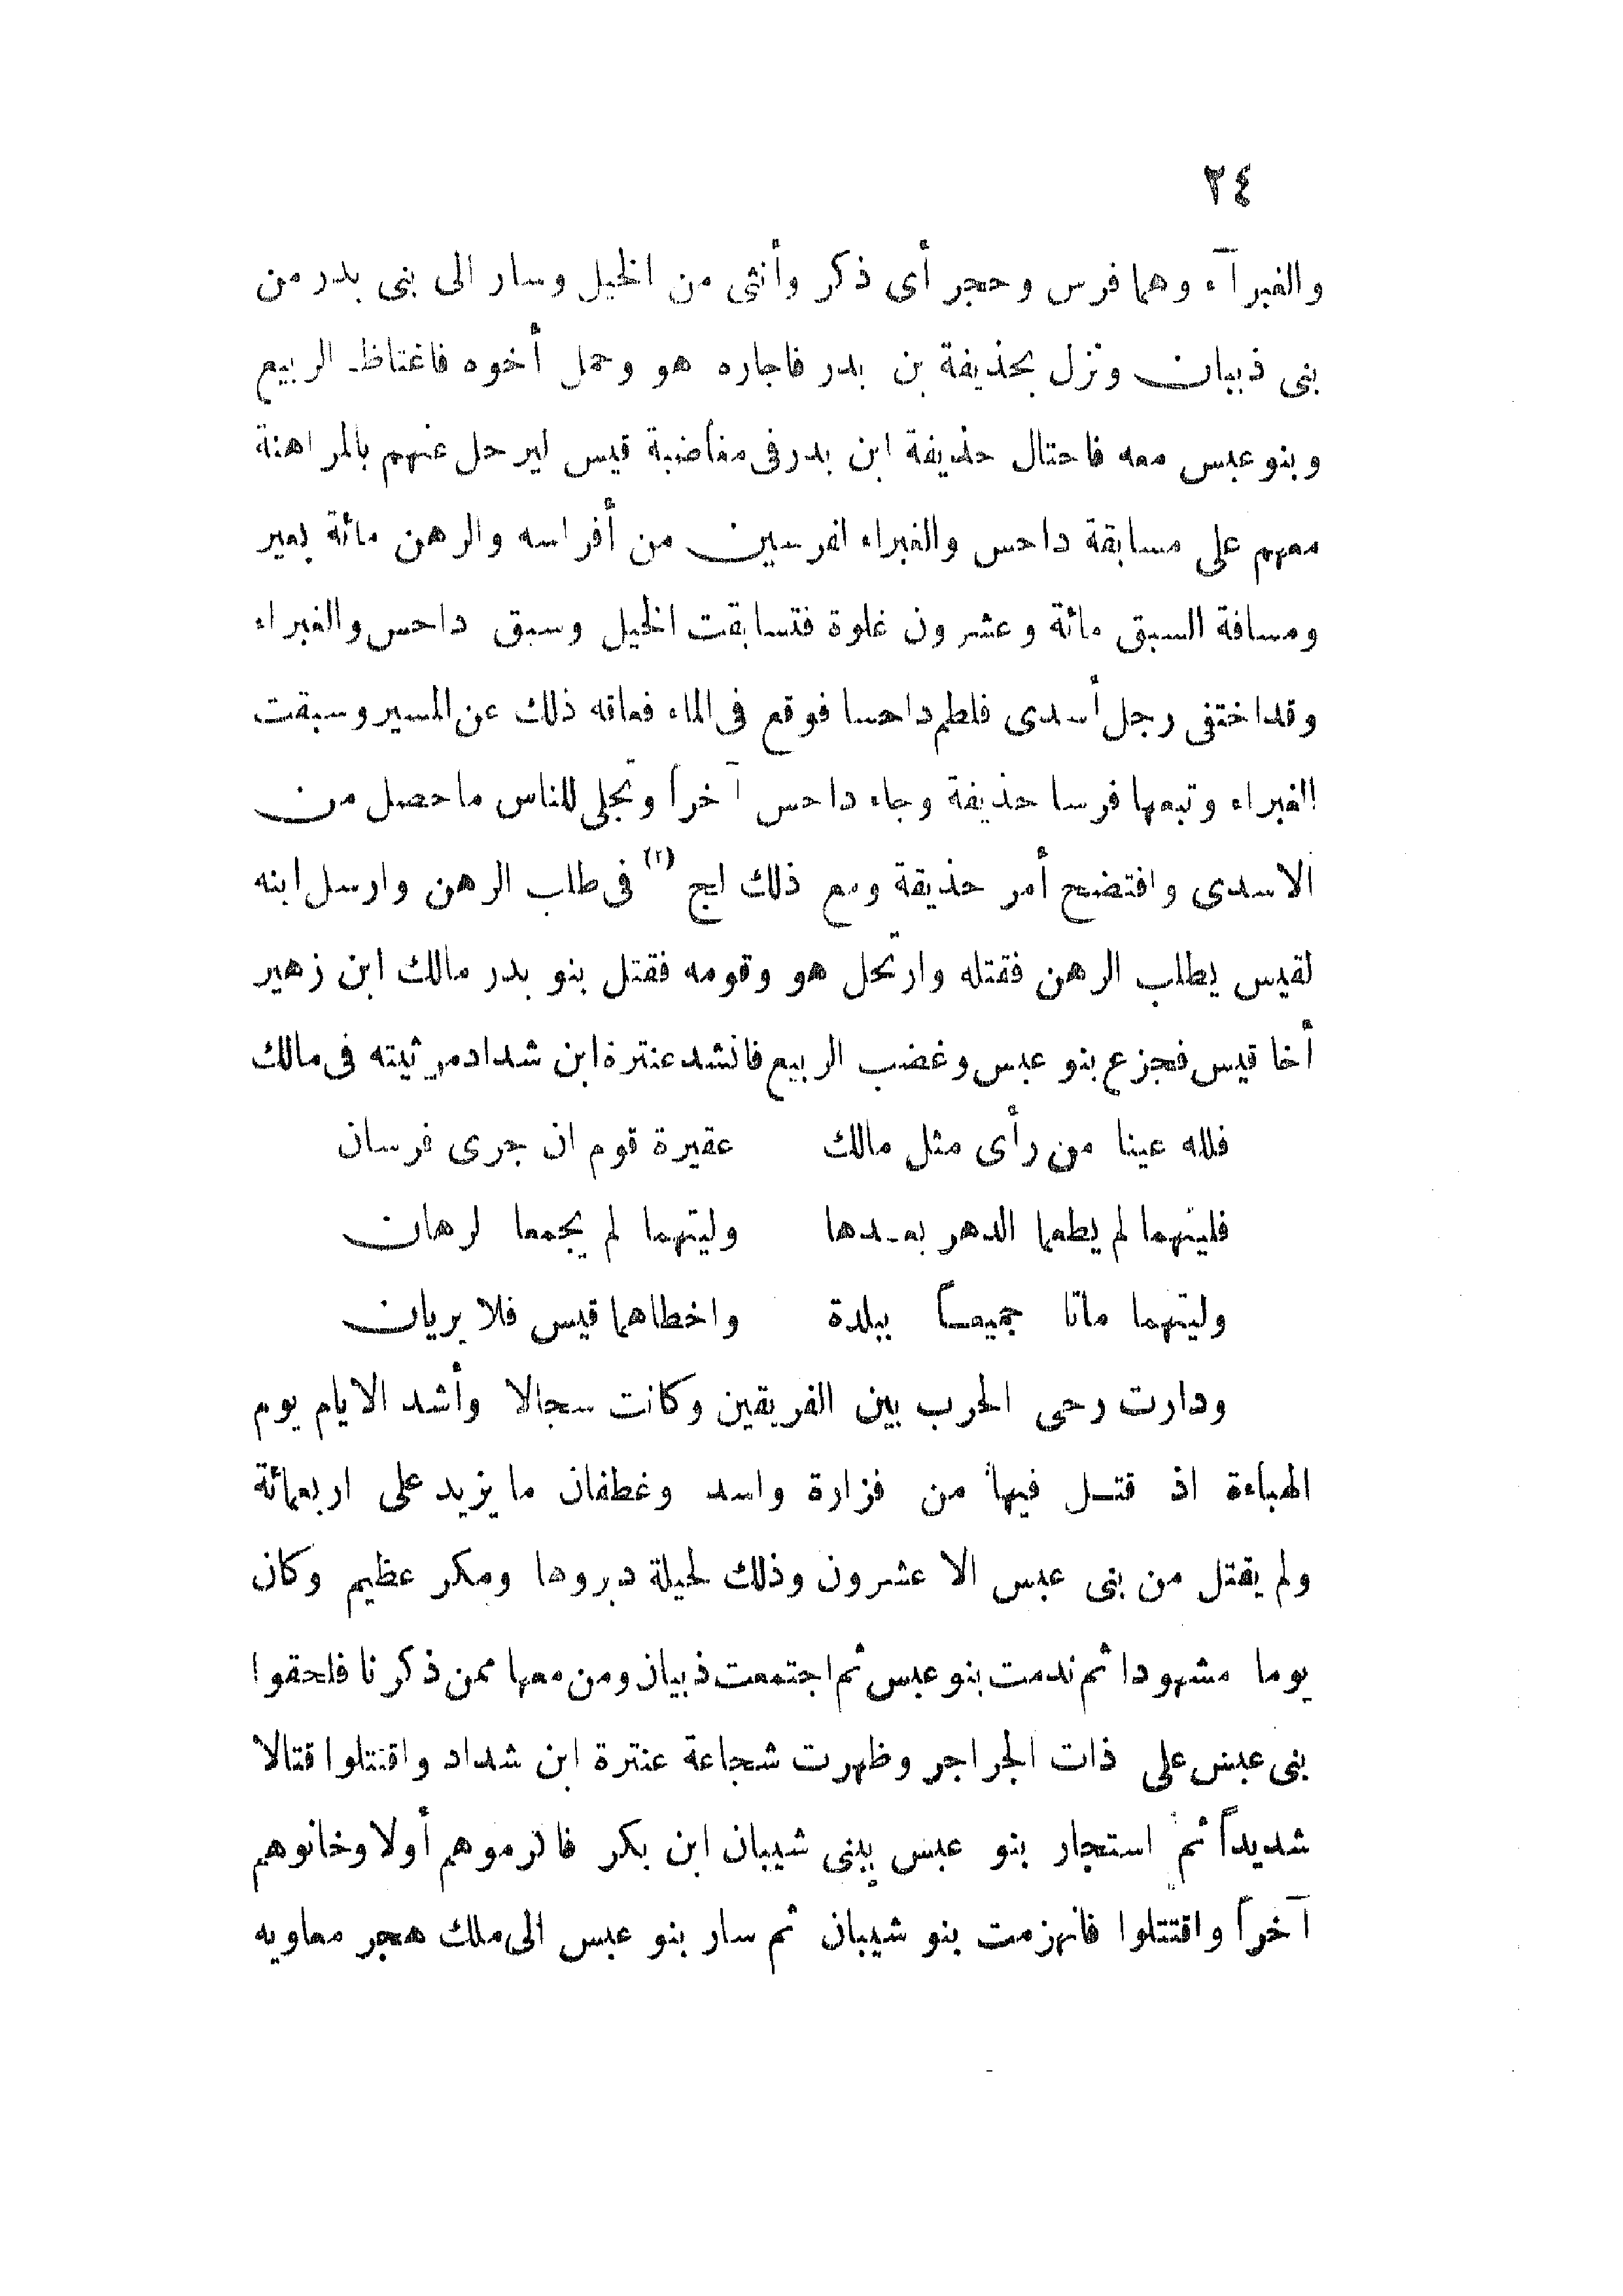 ٢٤
والغبرآء وهما فرس وحجر أى ذكر وأنثى من الخيل وسار الى بنى بدر من
بنى ذبيان ونزل بحذيفة بن بدر فاجاره هو وحمل أخوه فاغتاظ الربيع
وبنو عبس معه فاحتال حذيفة ابن بدر فى مغاضبة قيس ليرحل عنهم بالمراهنة
معهم على مسابقة داحس والغبراء لفرسين من أفراسه والرهن مائة بعير
ومسافة السبق مائة وعشرون غلوة فتسابقت الخيل وسبق داحس والغبراء
وقد اختفى رجل أسدى فلطم داحسا فوقع فى الماء فعاقه ذلك عن المسير وسبقت
الغبراء وتبعها فرسا حذيفة وجاء داحس آخراً وتجلى للناس ما حصل من
الاسدى وافتضح أمر حذيفة ومع ذلك لج (٢) فى طلب الرهن وارسل ابنه
لقيس يطلب الرهن فقتله وارتحل هو وقومه فقتل بنو بدر مالك ابن زهير
أخا قيس فجزع بنو عبس وغضب الربيع فانشد عنترة ابن شداد مرثيته فى مالك
فلله عينا من رأى مثل مالك عقيرة قوم ان جرى فرسان
فليتهما لم يطعما الدهر بعدها وليتهما لم يجمعا لرهان
وليتهما ماتا جميعاً ببلدة واخطاهما قيس فلا يريان
ودارت رحى الحرب بين الفريقين وكانت سجالا وأشد الايام يوم
الهباءة اذ قتل فيها من فزارة واسد وغطفان ما يزيد على اربعمائة
ولم يقتل من بنى عبس الا عشرون وذلك لحيلة دبروها ومكر عظيم وكان
يوما مشهودا ثم ندمت بنو عبس ثم اجتمعت ذبيان ومن معها ممن ذكرنا فلحقوا
بنى عبس على ذات الجراجر وظهرت شجاعة عنترة ابن شداد واقتتلوا قتالا
شديداً ثم استجار بنو عبس ببنى شيبان ابن بكر فاكرموهم أولا وخانوهم
آخراً واقتتلوا فانهزمت بنو شيبان ثم سار بنو عبس الى ملك هجر معاويه